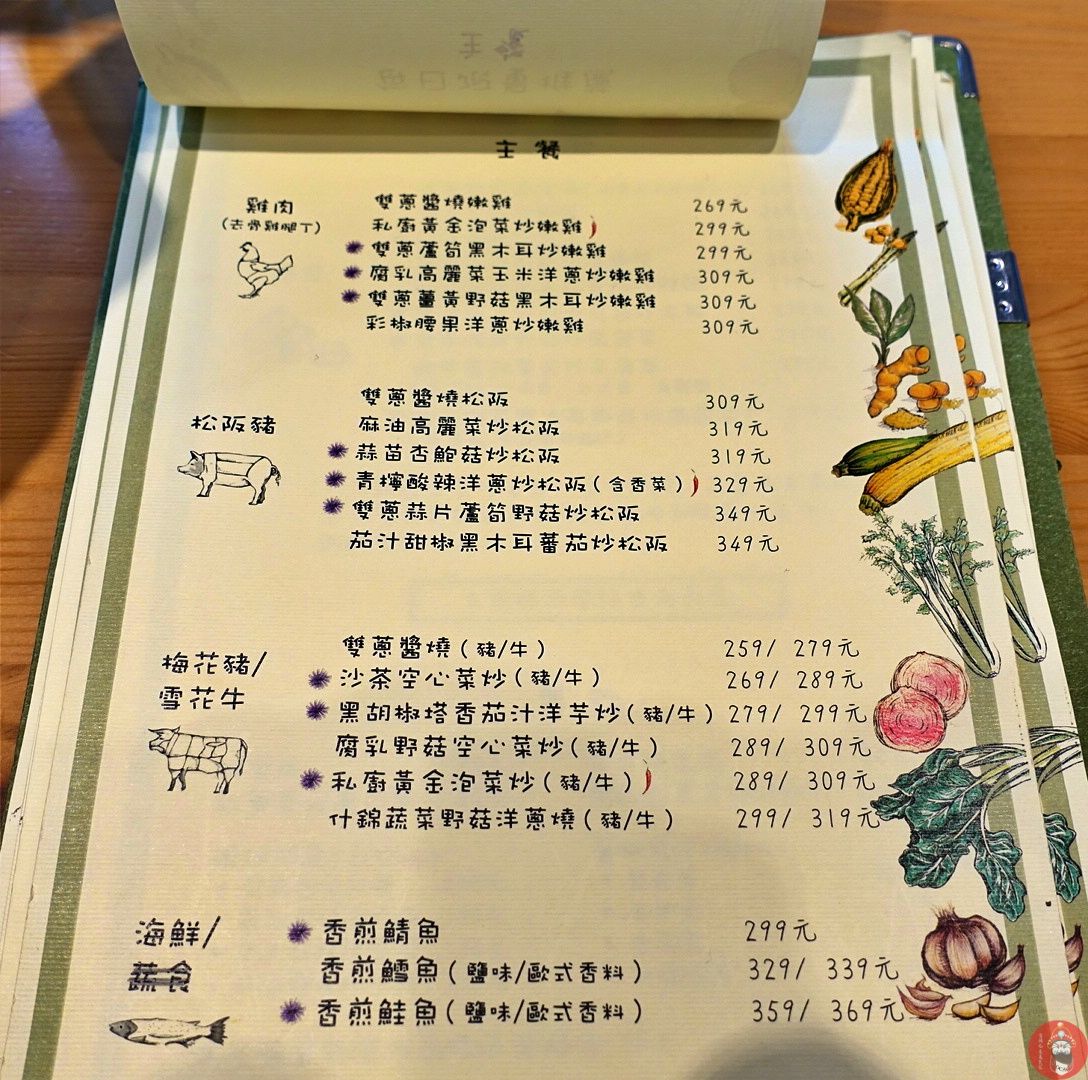 主餐
雞肉
(去骨雞腿丁)
雙蔥醬燒嫩雞 269元
私廚黃金泡菜炒嫩雞 299元
雙蔥蘆筍黑木耳炒嫩雞 299元
腐乳高麗菜玉米洋蔥炒嫩雞 309元
雙蔥薑黃野菇黑木耳炒嫩雞 309元
彩椒腰果洋蔥炒嫩雞 309元
松阪豬
雙蔥醬燒松阪 309元
麻油高麗菜炒松阪 319元
蒜苗杏鮑菇炒松阪 319元
青檸酸辣洋蔥炒松阪(含香菜) 329元
雙蔥蒜片蘆筍野菇炒松阪 349元
茄汁甜椒黑木耳蕃茄炒松阪 349元
梅花豬/
雪花牛
雙蔥醬燒(豬/牛) 259/ 279元
沙茶空心菜炒(豬/牛) 269/ 289元
黑胡椒塔香茄汁洋芋炒(豬/牛) 279/ 299元
腐乳野菇空心菜炒(豬/牛) 289/ 309元
私廚黃金泡菜炒(豬/牛) 289/ 309元
什錦蔬菜野菇洋蔥燒(豬/牛) 299/ 319元
海鮮/
蔬食
香煎鯖魚 299元
香煎鱈魚(鹽味/歐式香料) 329/ 339元
香煎鮭魚(鹽味/歐式香料) 359/ 369元